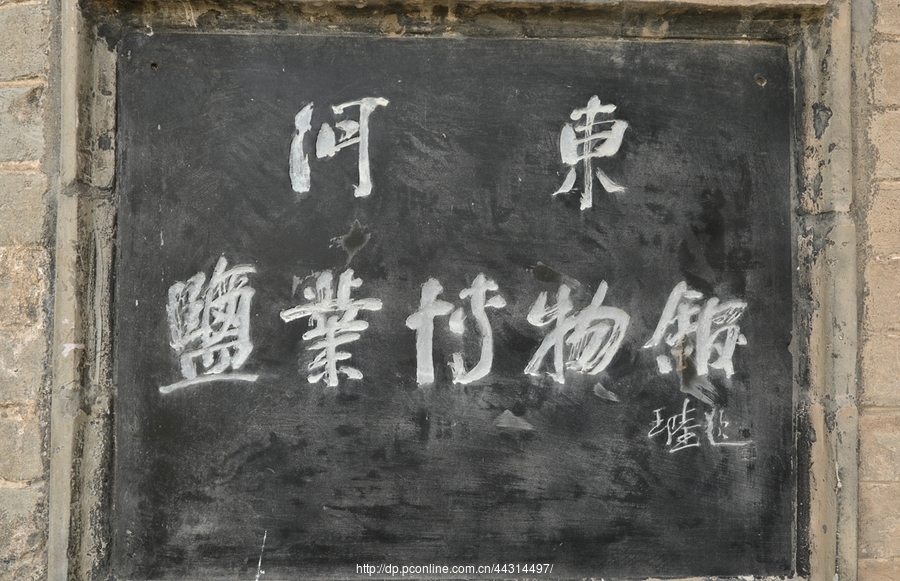 河東
鹽業博物館
http://dp.pconline.com.cn/44314497/